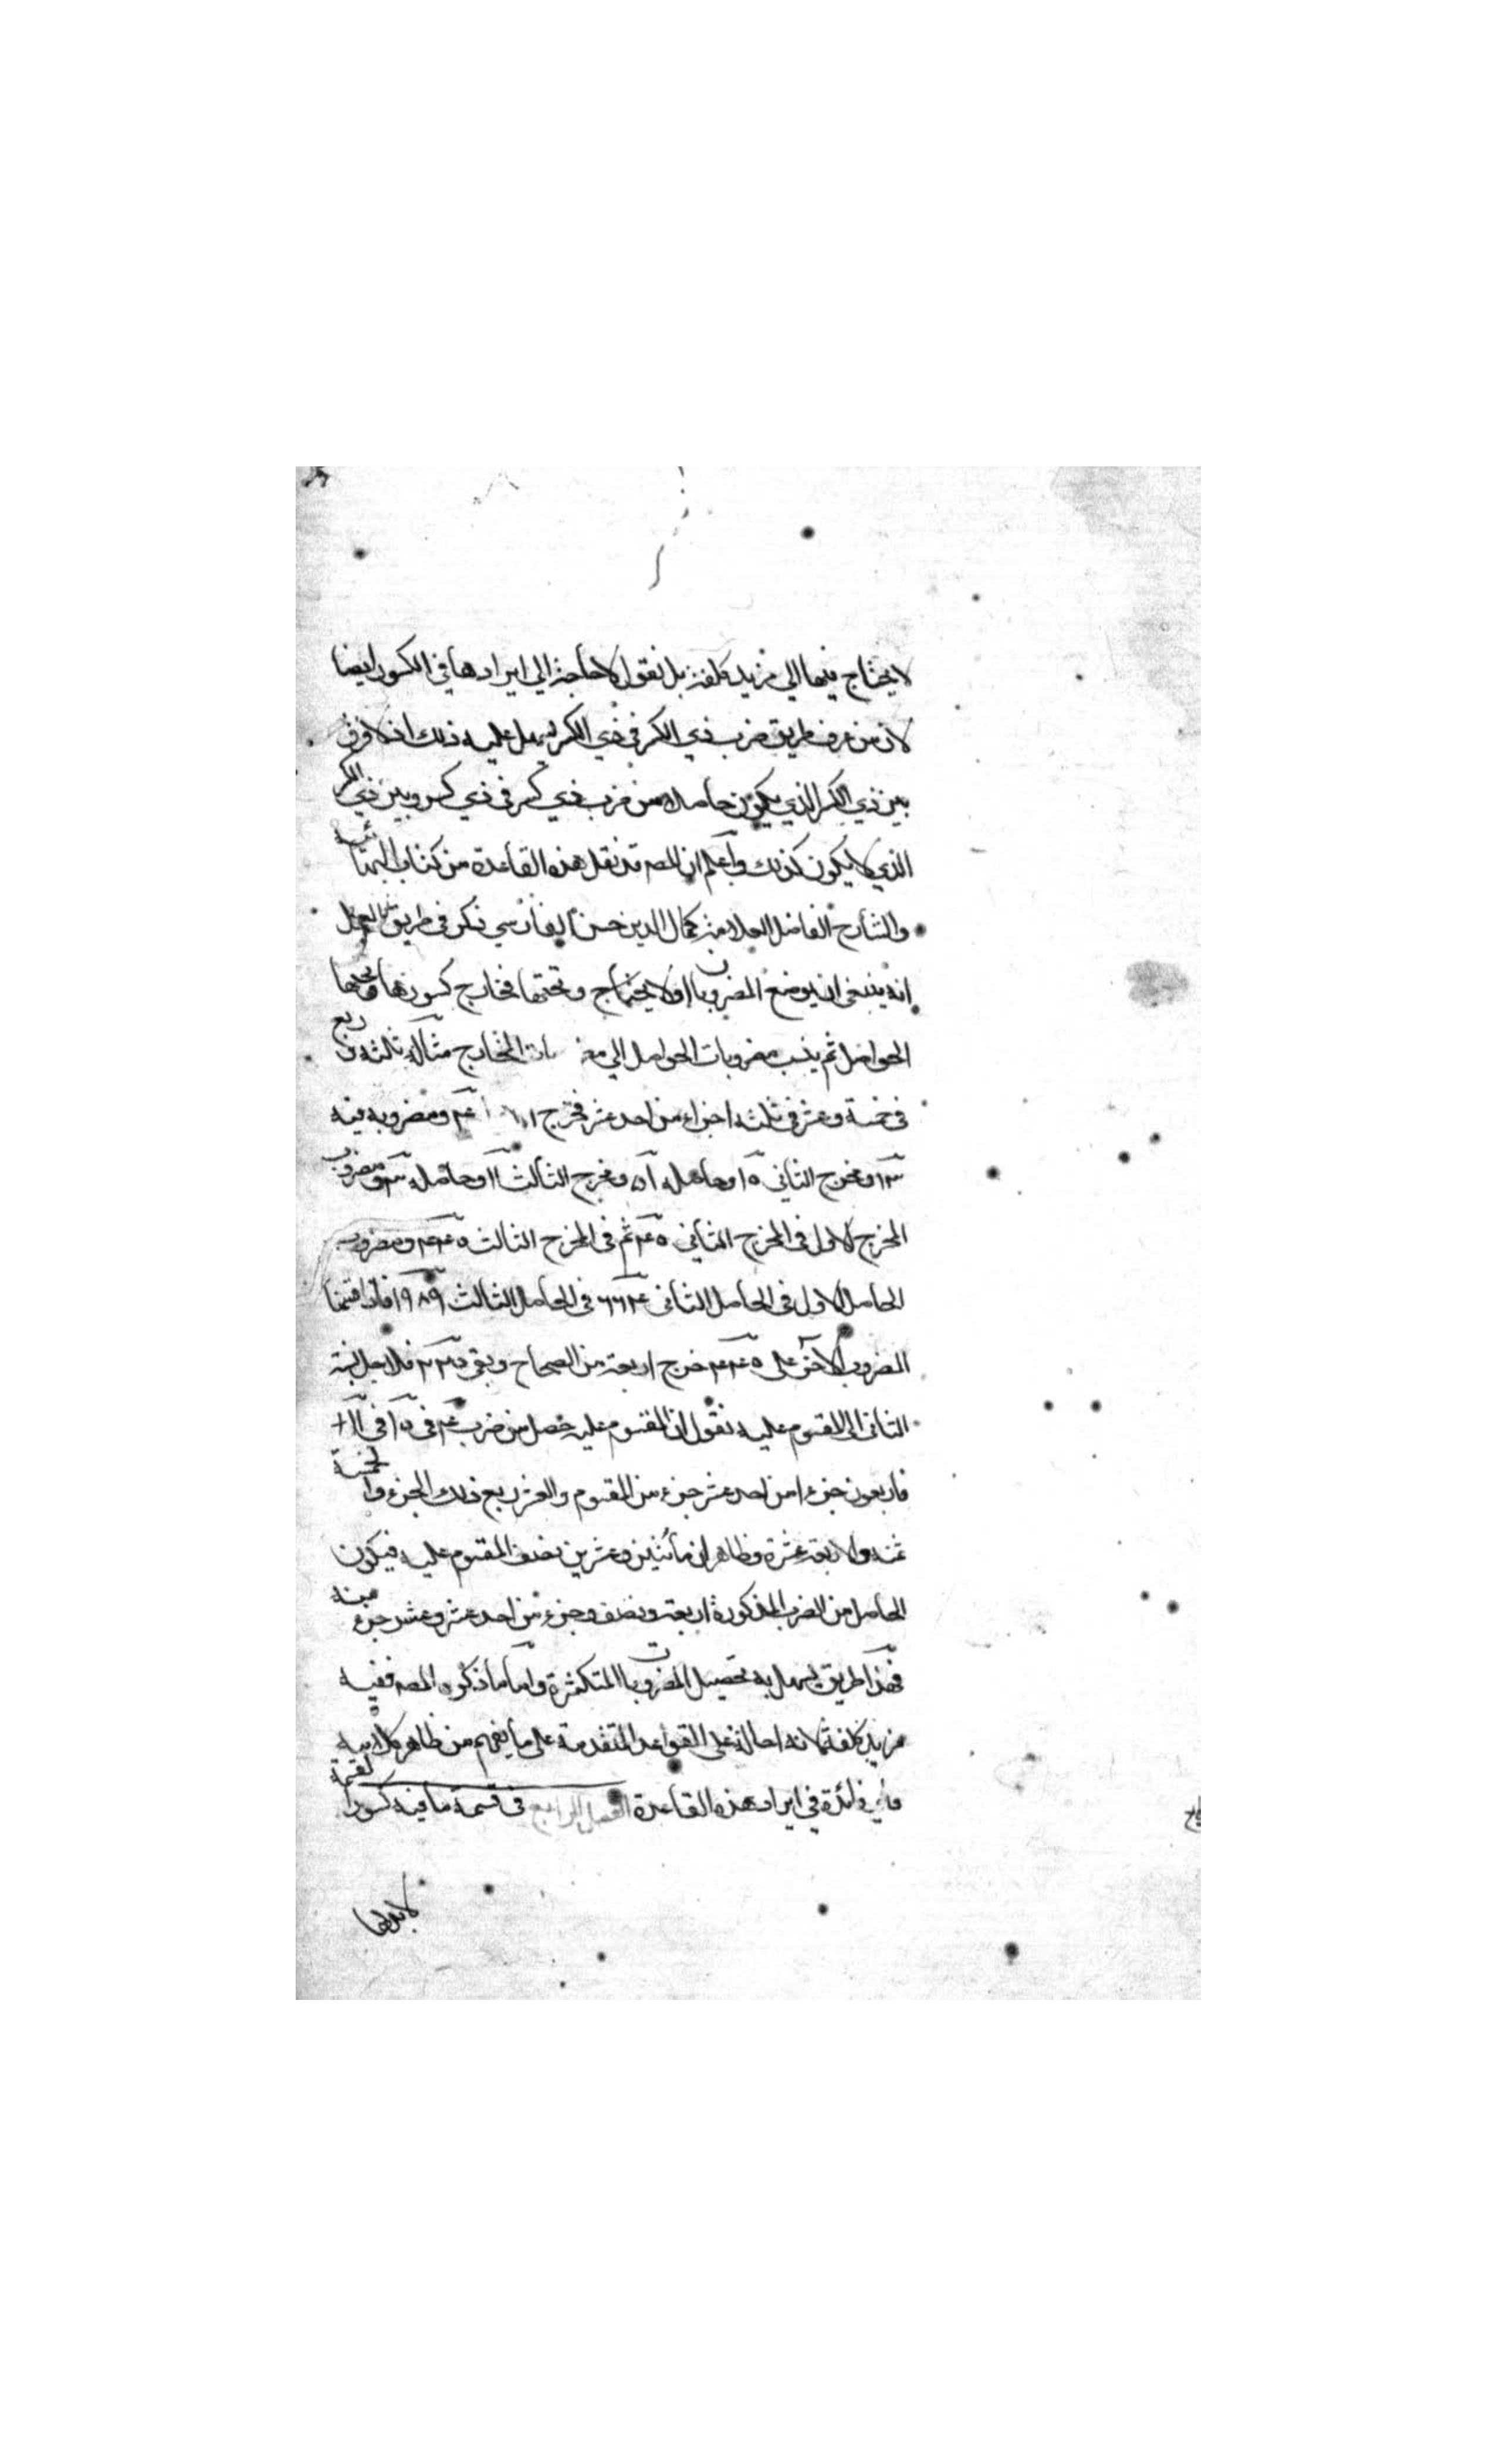 لا يحتاج فيها الي مزيد كلفة بل نقول لا حاجة الي ايرادها في الكسور ايضا
لان من عرف طريق ضرب ذي الكسر في ذي الكسر يسهل عليه ذلك اذ لا فرق
بين ذي الكسر الذي يكون حاصلا من ضرب ذي كسر في ذي كسر وبين ذي الكسر
الذي لا يكون كذلك واعلم ان المصـ قد نقل هذه القاعدة من كتاب البهائية
والشارح الفاضل العلامة كمال الدين حسن الفارسي ذكر في طريق العمل
انه ينبغي ان يوضع المضروبات اولا وتحتها مخارج كسورها وتحتها
الحواصل ثم ينسب مضروبات الحواصل الي المخارج مثاله ثلثة وربع
في خمسة وعشر في ثلثة اجزاء من احد عشر فمخرج ٤ ومضروبه فيه
١٣ ومخرج الثاني وحاصله ٥١ ومخرج الثالث ١١ وحاصله ومضروب
المخرج الاول في المخرج الثاني ثم في المخرج الثالث ومضروب
الحاصل الاول في الحاصل الثاني في الحاصل الثالث ١٩٨٩ فاذا قسمنا
المضروب الاخر علي خرج اربعة من الصحاح وبقي فلاجل نسبة
الثاني الى المقسوم عليه نقول ان المقسوم عليه حصل من ضرب ٤ في في ١١
فاربعون جزء من احد عشر جزء من المقسوم والعشر ربع ذلك الجزء والخمسة
ثمنه والاربعة عشرة وظاهر ان مأتين وعشرين نصف المقسوم عليه فيكون
الحاصل من الضرب المذكورة اربعة ونصف وجزء من احد عشر وعشر جزء منه
فهذا طريق يسهل به تحصيل المضروبات المتكثرة واما ما ذكره المصـ ففيه
مزيد كلفة لانه احالة على القواعد المتقدمة على ما يفهم من ظاهر كلامه
فاي فائدة في ايراد هذه القاعدة الفصل الرابع في قسمة ما فيه كسور القسمة
لا بد لها